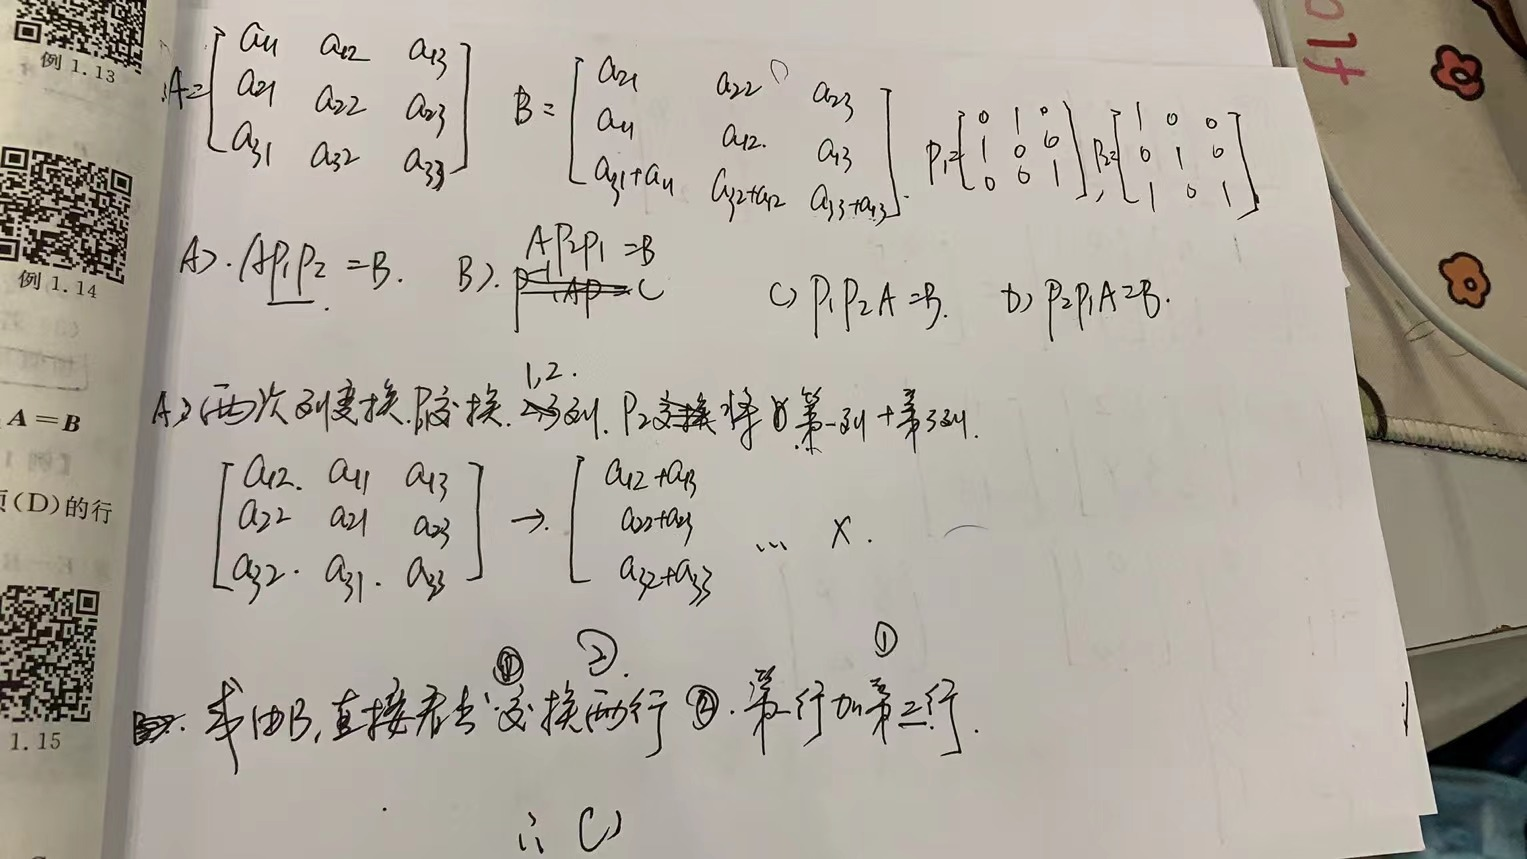 例 1.13
A = [ a11 a12 a13
a21 a22 a23
a31 a32 a33 ]
B = [ a21 a22 a23
a11 a12. a13
a31+a11 a32+a12 a33+a13 ].
P1= [ 0 1 0
1 0 0
0 0 1 ],
P2= [ 1 0 0
0 1 0
1 0 1 ]
例 1.14
A). AP1P2 = B. B). AP2P1 = B
C) P1P2A = B. D) P2P1A = B.
A = B
(D)的行
1,2.
A) 两次列变换. P1交换. 列. P2 将 第一列+第3列.
[ a12. a11 a13
a22 a21 a23
a32. a31. a33 ]
→. [ a12+a13
a22+a23
a32+a33
... X.
② ①
或由B,直接看出 交换两行 ②. 第 行加第三行.
1.15
∴ C)